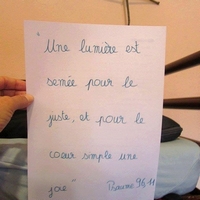 "Une lumière est
semée pour le
juste, et pour le
cœur simple une
joie" Psaume 96,11